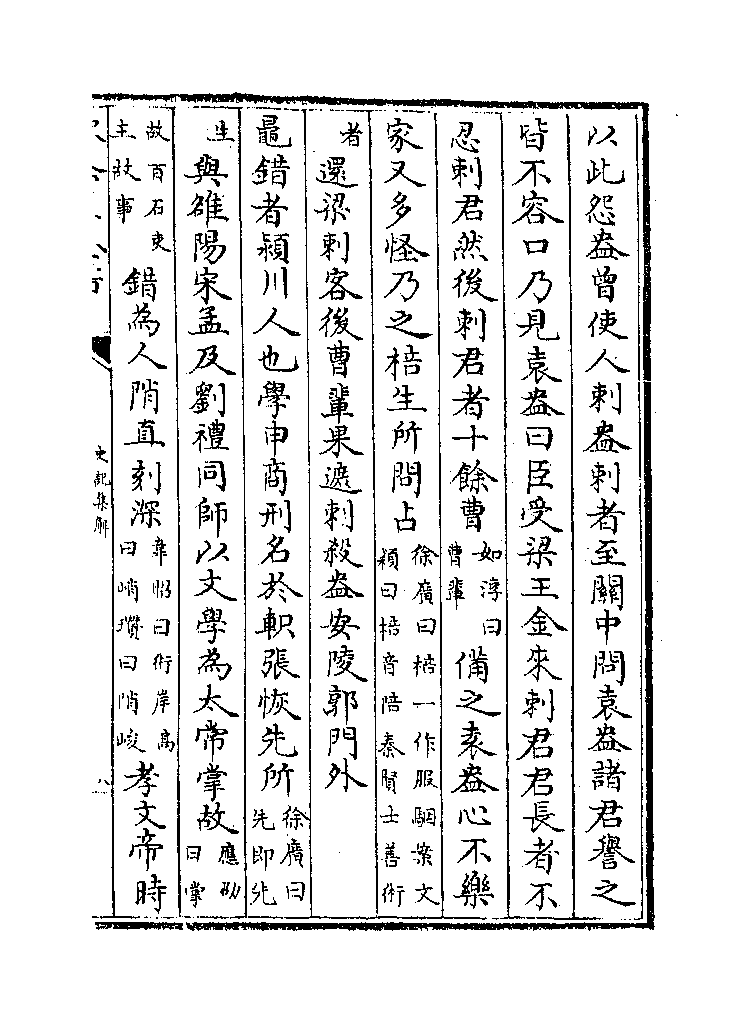 以此怨盎曾使人刺盎刺者至關中問袁盎諸君譽之
皆不容口乃見袁盎曰臣受梁王金來刺君君長者不
忍刺君然後刺君者十餘曹如淳曰曹輩備之袁盎心不樂
家又多怪乃之棓生所問占徐廣曰棓一作服駰案文穎曰棓音陪秦賢士善術
者還梁刺客後曹輩果遮刺殺盎安陵郭門外
鼂錯者潁川人也學申商刑名於軹張恢先所徐廣曰先即先
生與雒陽宋孟及劉禮同師以文學為太常掌故應劭曰掌
故百石吏主故事錯為人陗直刻深韋昭曰術岸高曰峭瓚曰陗峻孝文帝時
史記集解
八